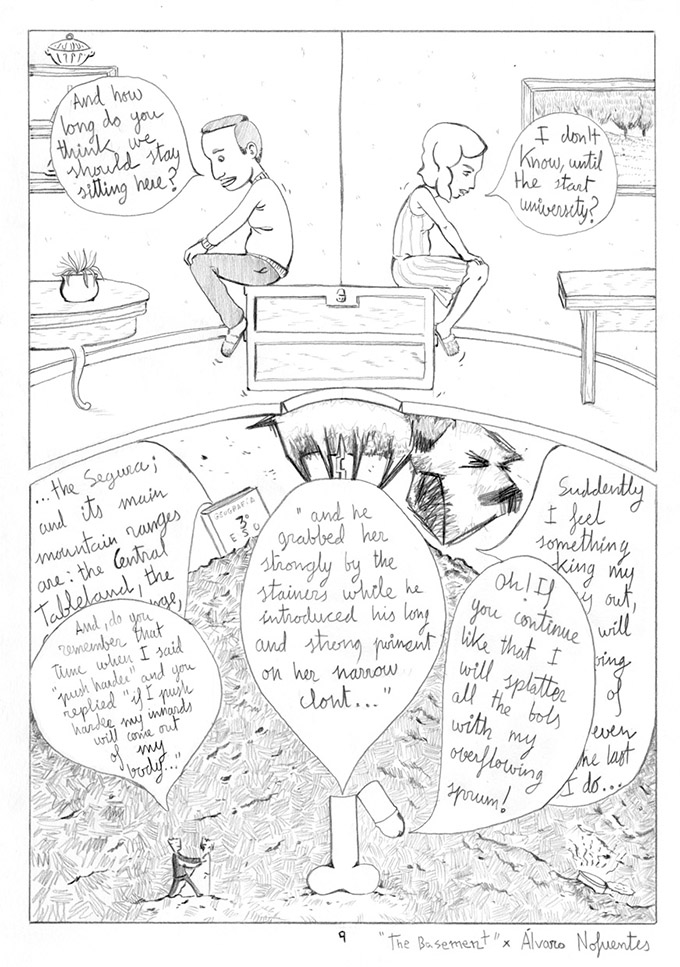 And how
long do you
think we
should stay
sitting here?
I don't
know, until
the start
university?
...the Segura;
and its main
mountain ranges
are: the Central
Tableland, the
GEOGRAFIA
3º
E S O
" and he
grabbed her
strongly by the
stainers while he
introduced his long
and strong
on her narrow
clont..."
Suddenly
I feel
something
king my
is out,
will
of
even
he last
I do...
And, do you
remember that
time when I said
"push harder" and you
replied "if I push
harder my innards
will come out
of my
body..."
Oh! If
you continue
like that I
will splatter
all the bols
with my
overflowing
sprum!
9
"The Basement" x Álvaro Nofuentes